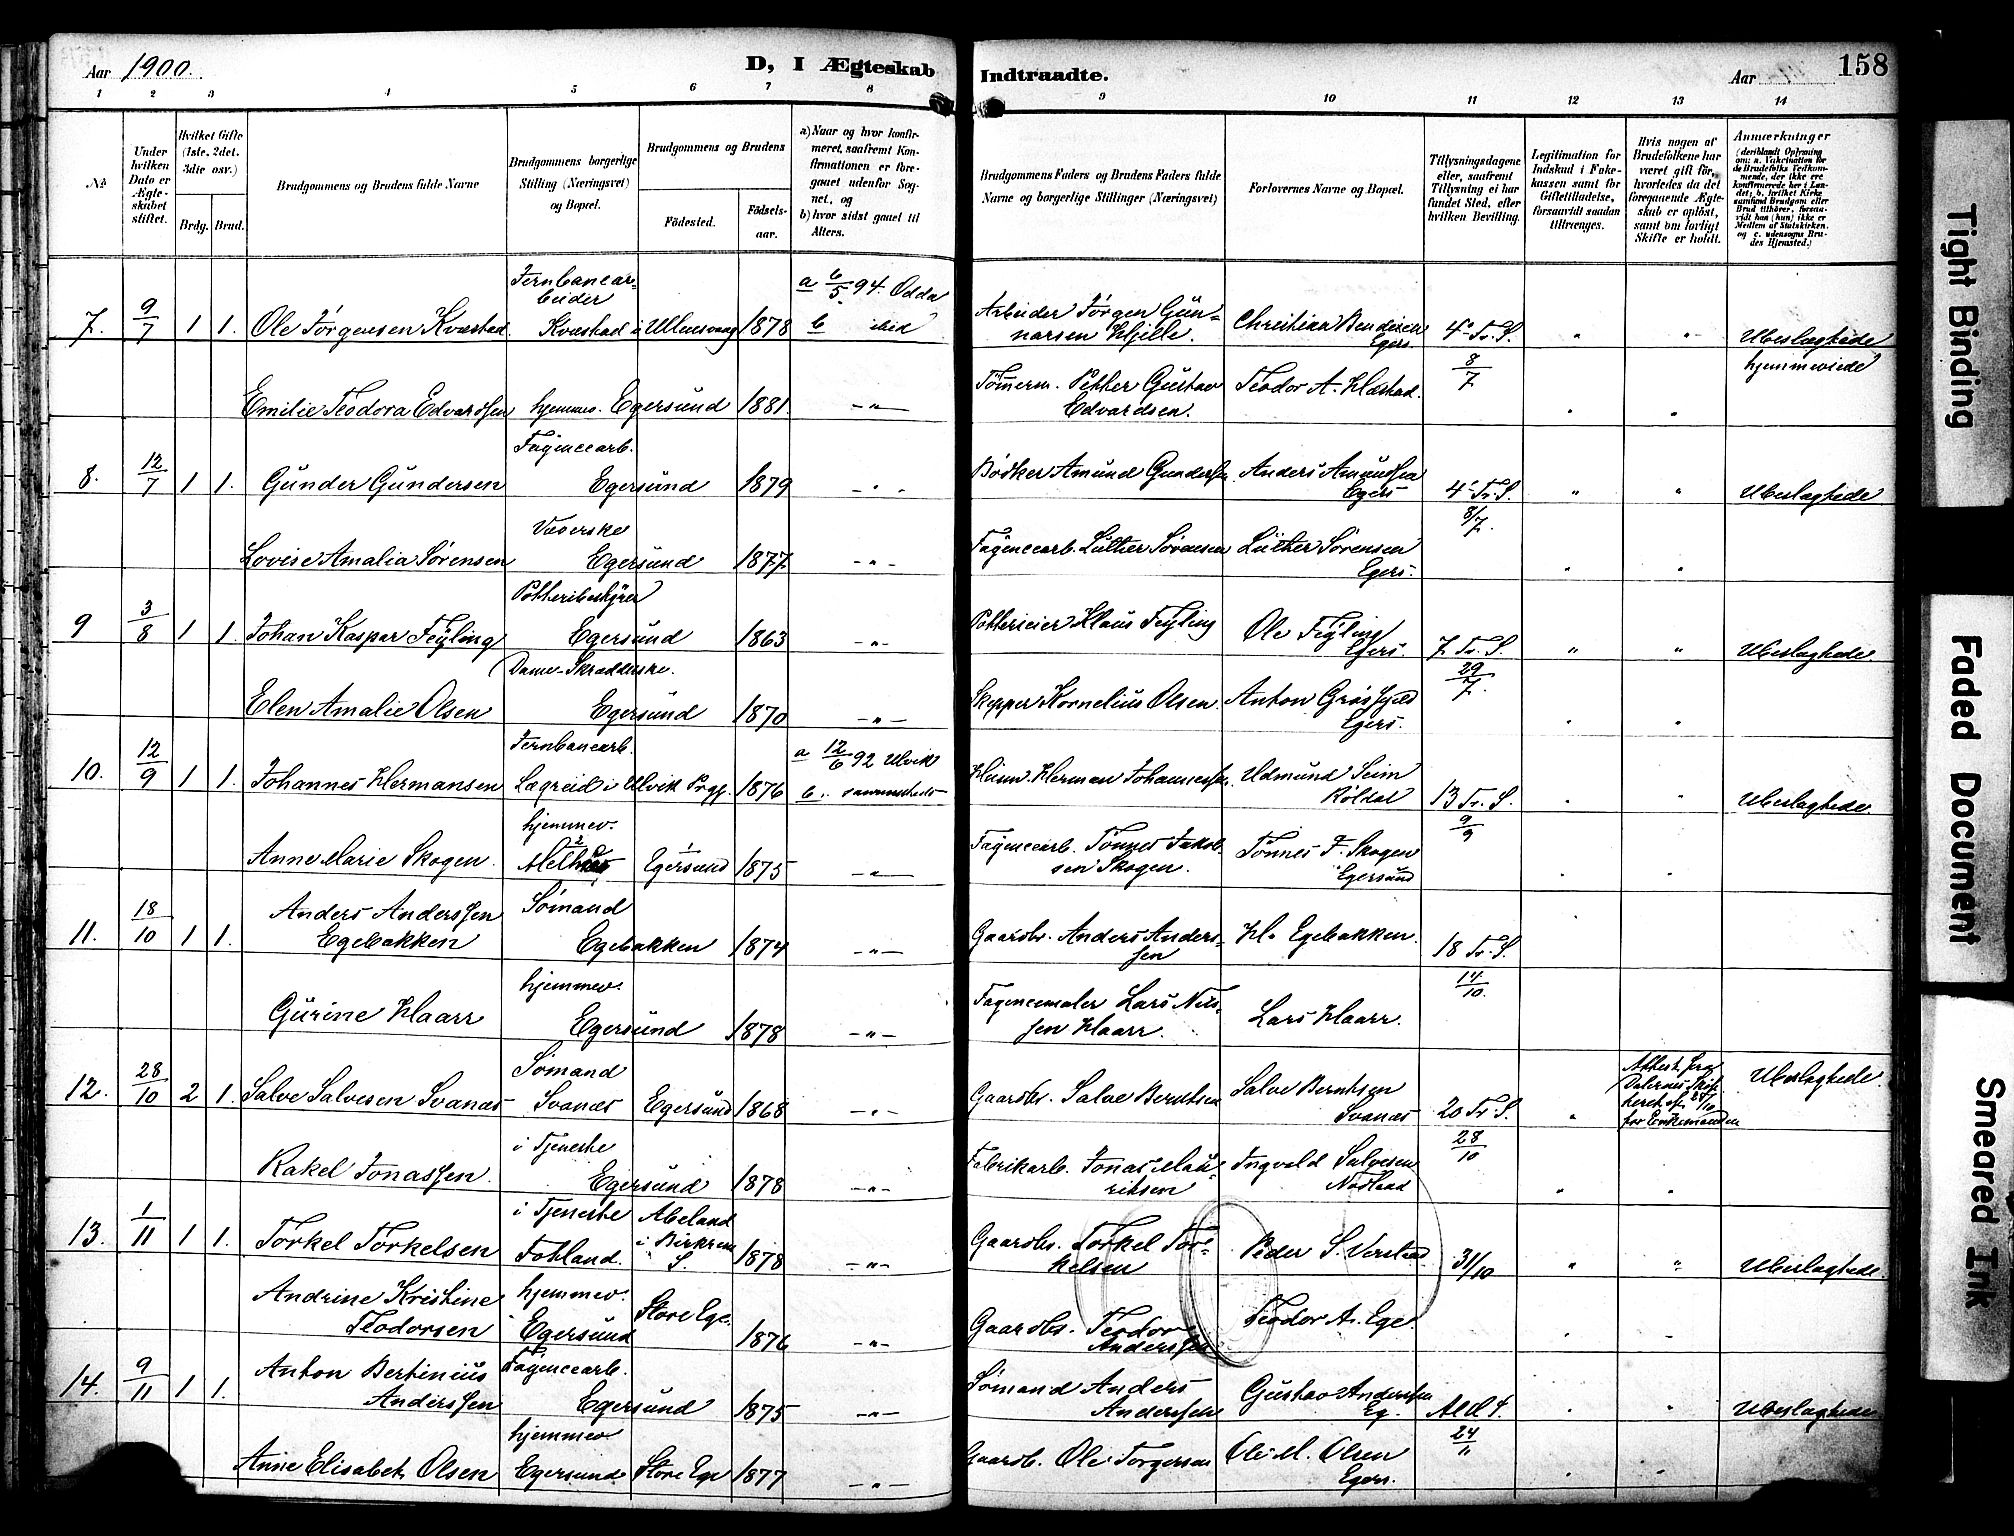 Aar 1900.
D, I Ægteskab
Indtraadte.
Aar
158
1 2 3 4 5 6 7 8 9 10 11 12 13 14
No
Under hvilken Dato er Ægteskabet stiftet.
Hvilket Gifte (1ste, 2det, 3die osv.)
Brdg. Brud.
Brudgommens og Brudens fulde Navne
Brudgommens borgerlige Stilling (Næringsvei) og Bopæl.
Brudgommens og Brudens
Födested.
Födsels-aar.
a) Naar og hvor konfirmeret, saafremt Konfirmationen er foregaaet udenfor Sognet, og
b) hvor sidst gaaet til Alters.
Brudgommens Faders og Brudens Faders fulde Navne og borgerlige Stillinger (Næringsvei)
Forlovernes Navne og Bopæl.
Tillysningsdagene eller, saafremt Tillysning ei har fundet Sted, efter hvilken Bevilling.
Legitimation for Indskud i Enkekassen samt for Giftetilladelse, forsaavidt saadan tiltrænges.
Hvis nogen af Brudefolkene har været gift för, hvorledes da det foregaaende Ægteskab er oplöst, samt om lovligt Skifte er holdt.
Anmærkninger
(deriblandt Oplysning om: a. Vakcination for de Brudefolks Vedkommende, der ikke ere konfirmerede her i Landet; b. hvilket Kirkesamfund Brudgom eller Brud tilhörer, forsaavidt han (hun) ikke er Medlem af Statskirken, og c. udensogns Brudes Hjemsted.)
7. 9/7 1 1. Ole Jørgensen Kvæstad
Jernbanearbeider
Kvæstad i Ullensvang 1878
a 6/5 94. Odda
b ibid
Arbeider Jørgen Gunnarsen Hjelle.
Christian Bendixen Egers.
4 Tr. S.
8/7
" " Ubeslægtede
hjemmeviede
Emilie Teodora Edvardsen hjemmev. Egersund 1881. —"—
Tømmerm. Petter Gustav Edvardsen.
Teodor A. Hæstad.
" "
8. 12/7 1 1. Gunder Gundersen
Fayencearb.
Egersund 1879 —"—
Bødker Amund Gundersen
Anders Amundsen Egers
4 Tr. S.
8/7.
" " Ubeslægtede
Lovise Amalia Sørensen
Væverske
Egersund 1877. —"—
Fayencearb. Luther Sørensen
Luther Sørensen Egers.
" "
9 3/8 1 1. Johan Kaspar Feyling
Potteribestyrer
Egersund 1863 —"—
Potterieier Klaus Feyling
Ole Feyling Egers.
7 Tr. S.
29/7.
" " Ubeslægtede
Elen Amalie Olsen
Dame-Skrædderske.
Egersund 1870 —"—
Skipper Kornelius Olsen.
Anton Grøsfjeld Egers.
" "
10. 12/9 1 1. Johannes Hermansen
Jernbanearb.
Lægreid i Ulvik Prgj. 1876
a 12/6 92 Ulvik
b. sammesteds
Huusm. Herman Johannessen.
Udmund Seim Röldal
13 Tr. S.
9/9
" " Ubeslægtede.
Anne Marie Skogen.
hjemmev.
Egersund 1875 —"—
Fayencearb. Tönnes Jakobsen Skogen.
Tönnes J. Skogen Egersund
" "
11. 18/10 1 1. Anders Anderssen Egebakken
Sømand
Egebakken 1874 —"—
Gaardbr. Anders Anderssen
Hl. Egebakken.
18 Tr. S.
14/10.
Gurine Haarr
hjemmev.
Egersund 1878 —"—
Fayencemaler Lars Nilssen Haarr.
Lars Haarr.
12. 28/10 2 1. Salve Salvesen Svanæs
Sømand
Svanæs Egersund 1868 —"—
Gaardbr. Salve Berntsen
Salve Berntsen Svanæs
20 Tr. S.
28/10
" Attest fra Dalernes Skifteret af 24/10 for Enkemanden
Ubeslægtede.
Rakel Jonassen.
i Tjeneste
Egersund 1878 —"—
Fabrikarb. Jonas Mauritsen
Ingvald Salvesen Nodland
" "
13. 1/11 1 1. Torkel Torkelsen
i Tjeneste
Fotland.
Aleland i Birkrem S 1878 —"—
Gaardbr. Torkel Torkelsen
Peder S. Verstad
31/10
" " Ubeslægtede.
Andrine Kristine Teodorsen
hjemmev.
Egersund
Store Ege. 1876 —"—
Gaardbr. Teodor Anderssen
Teodor A. Ege.
" "
14. 9/11 1 1. Anton Bertinius Anderssen
Fayencearb.
Egersund 1875 —"—
Sømand Anders Anderssen
Gustav Anderssen Eg.
24/11
" " Ubeslægtede
Anne Elisabet Olsen
hjemmev
Egersund Store Ege 1877 —"—
Gaardb. Ole Torgersen
Ole M. Olsen Egers.
" "
Tight Binding
Faded Document
Smeared Ink